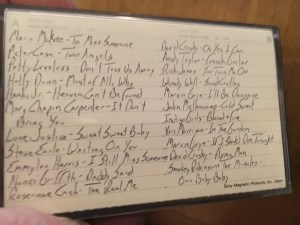 A
Maria McKee - I'm Miss Someone
Peter Case - Two Angels
Patty Loveless - Don't Toss Us Away
Holly Dunn - Most of All, Why
Hank, Jr. - Heaven Can't Be Found
Mary Chapin Carpenter - It Ain't
Bring You
Lone Justice - Sweet Sweet Baby
Steve Earle - Waiting On You
Emmylou Harris - I Still Miss Someone
Nanci Griffith - Daddy Said
Rosanne Cash - The Real Me
David Crosby - Oh Yes I Can
Andy Taylor - French Guitar
Rick James - You Turn Me On
Wendy Wall -
Marvin Gaye - I'll Be Doggone
John Mellencamp -
Indigo Girls - Blood + Fire
Van Morrison - In The Garden
Marvin Gaye - If I Should Die Tonight
David Crosby - Flying Man
Smokey Robinson & The Miracles -
Ooo Baby Baby
Sony Magnetic Products, Inc. Japan